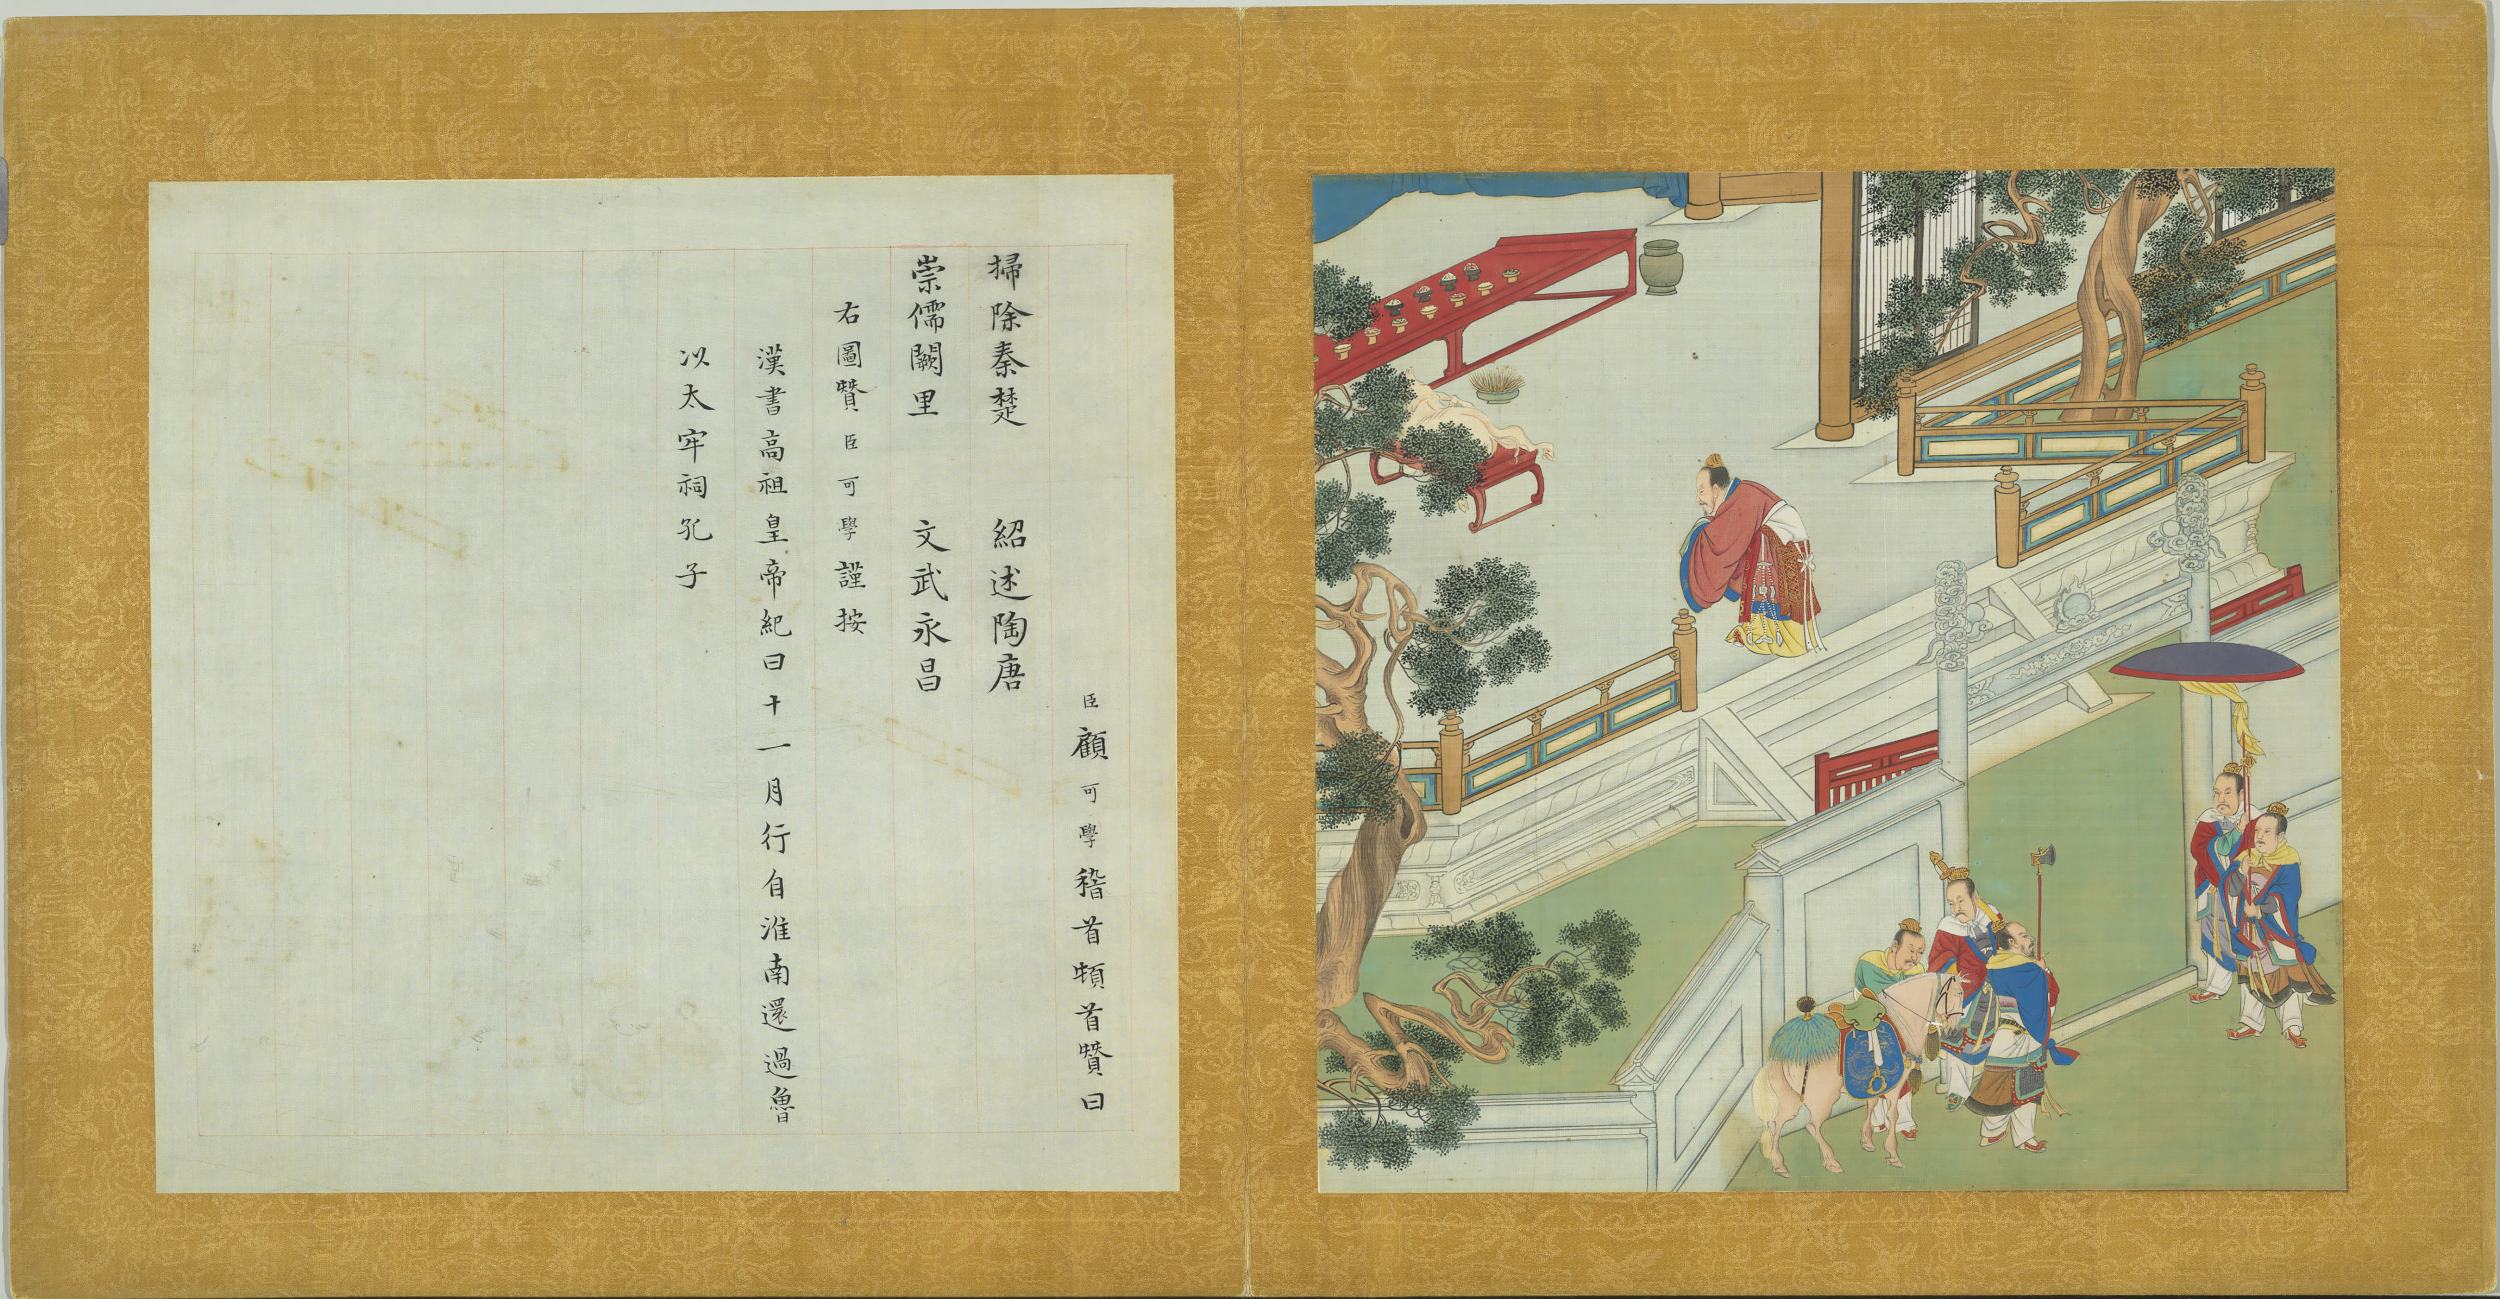 臣顧可學稽首頓首贊曰
掃除秦楚 紹述陶唐
崇儒闕里 文武永昌
右圖贊臣可學謹按
漢書高祖皇帝紀曰十一月行自淮南還過魯
以太牢祠孔子